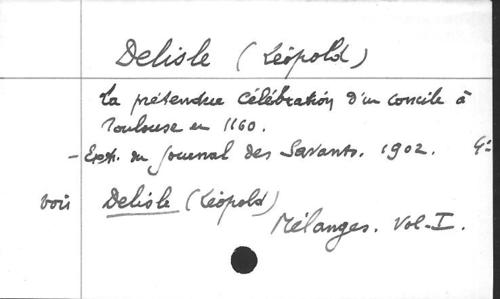 Delisle (Léopold)
La prétendue célébration d'un concile à
Toulouse en 1160.
- Extr. du Journal des Savants. 1902. 4º
voir Delisle (Léopold)
Mélanges. Vol-I.